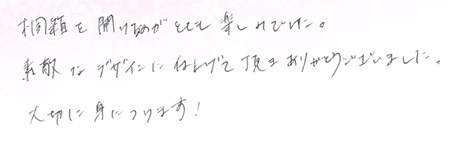 桐箱を開けるのがとても楽しみでした。
素敵なデザインに仕上げて頂きありがとうございました。
大切に身につけます！